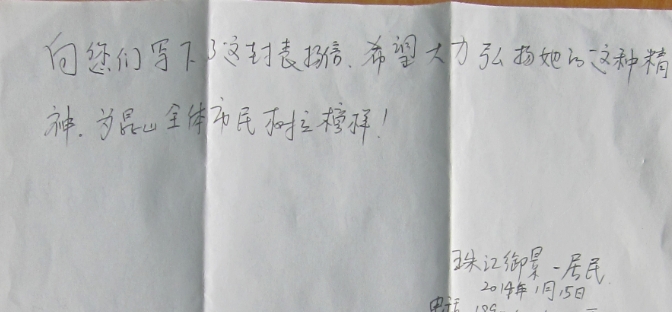 向您们写下了这封表扬信、希望大力弘扬她的这种精
神.为昆山全体市民树立榜样!
珠江御景-居民
2014年1月15日
电话